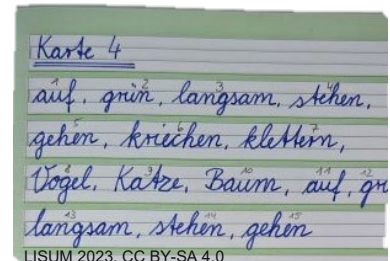 Karte 4
auf, grün, langsam, stehen,
gehen, kriechen, klettern,
Vogel, Katze, Baum, auf, gr
langsam, stehen, gehen
LISUM 2023, CC BY-SA 4.0